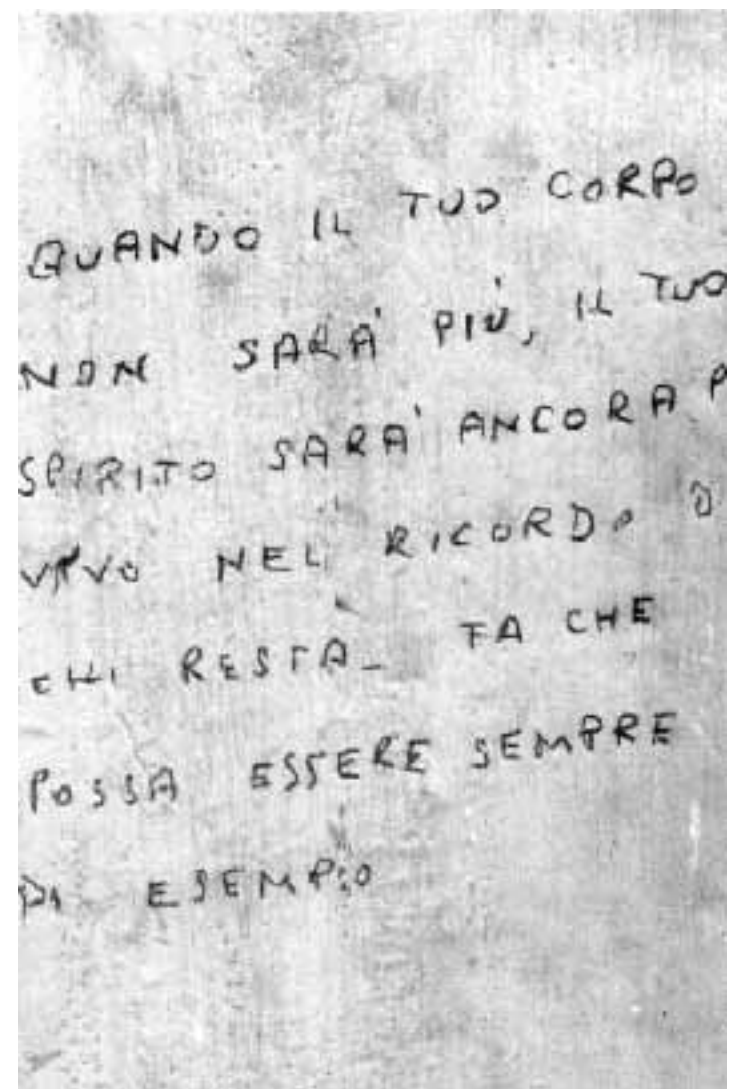 QUANDO IL TUO CORPO
NON SARA' PIU', IL TUO
SPIRITO SARA' ANCORA
VIVO NEL RICORDO
CHI RESTA_ FA CHE
POSSA ESSERE SEMPRE
DI ESEMPIO